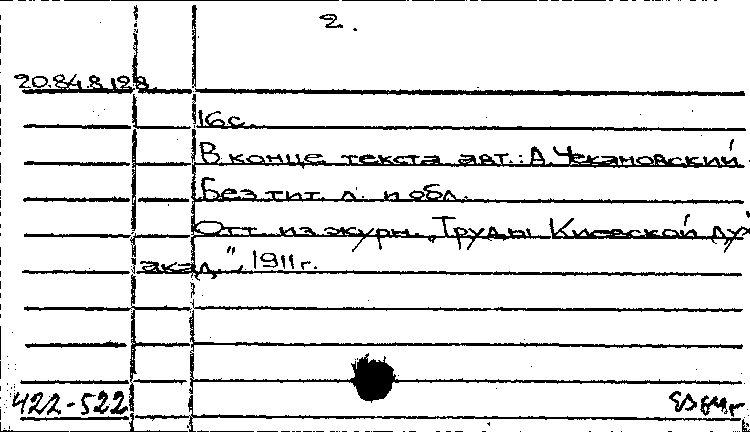 2.
20.84.8.128.
16 с.
В конце текста авт.: А. Чекановский
Без тит. л. и обл.
Отт. из журн. „Труды Киевской дух
акад.", 1911 г.
422-522